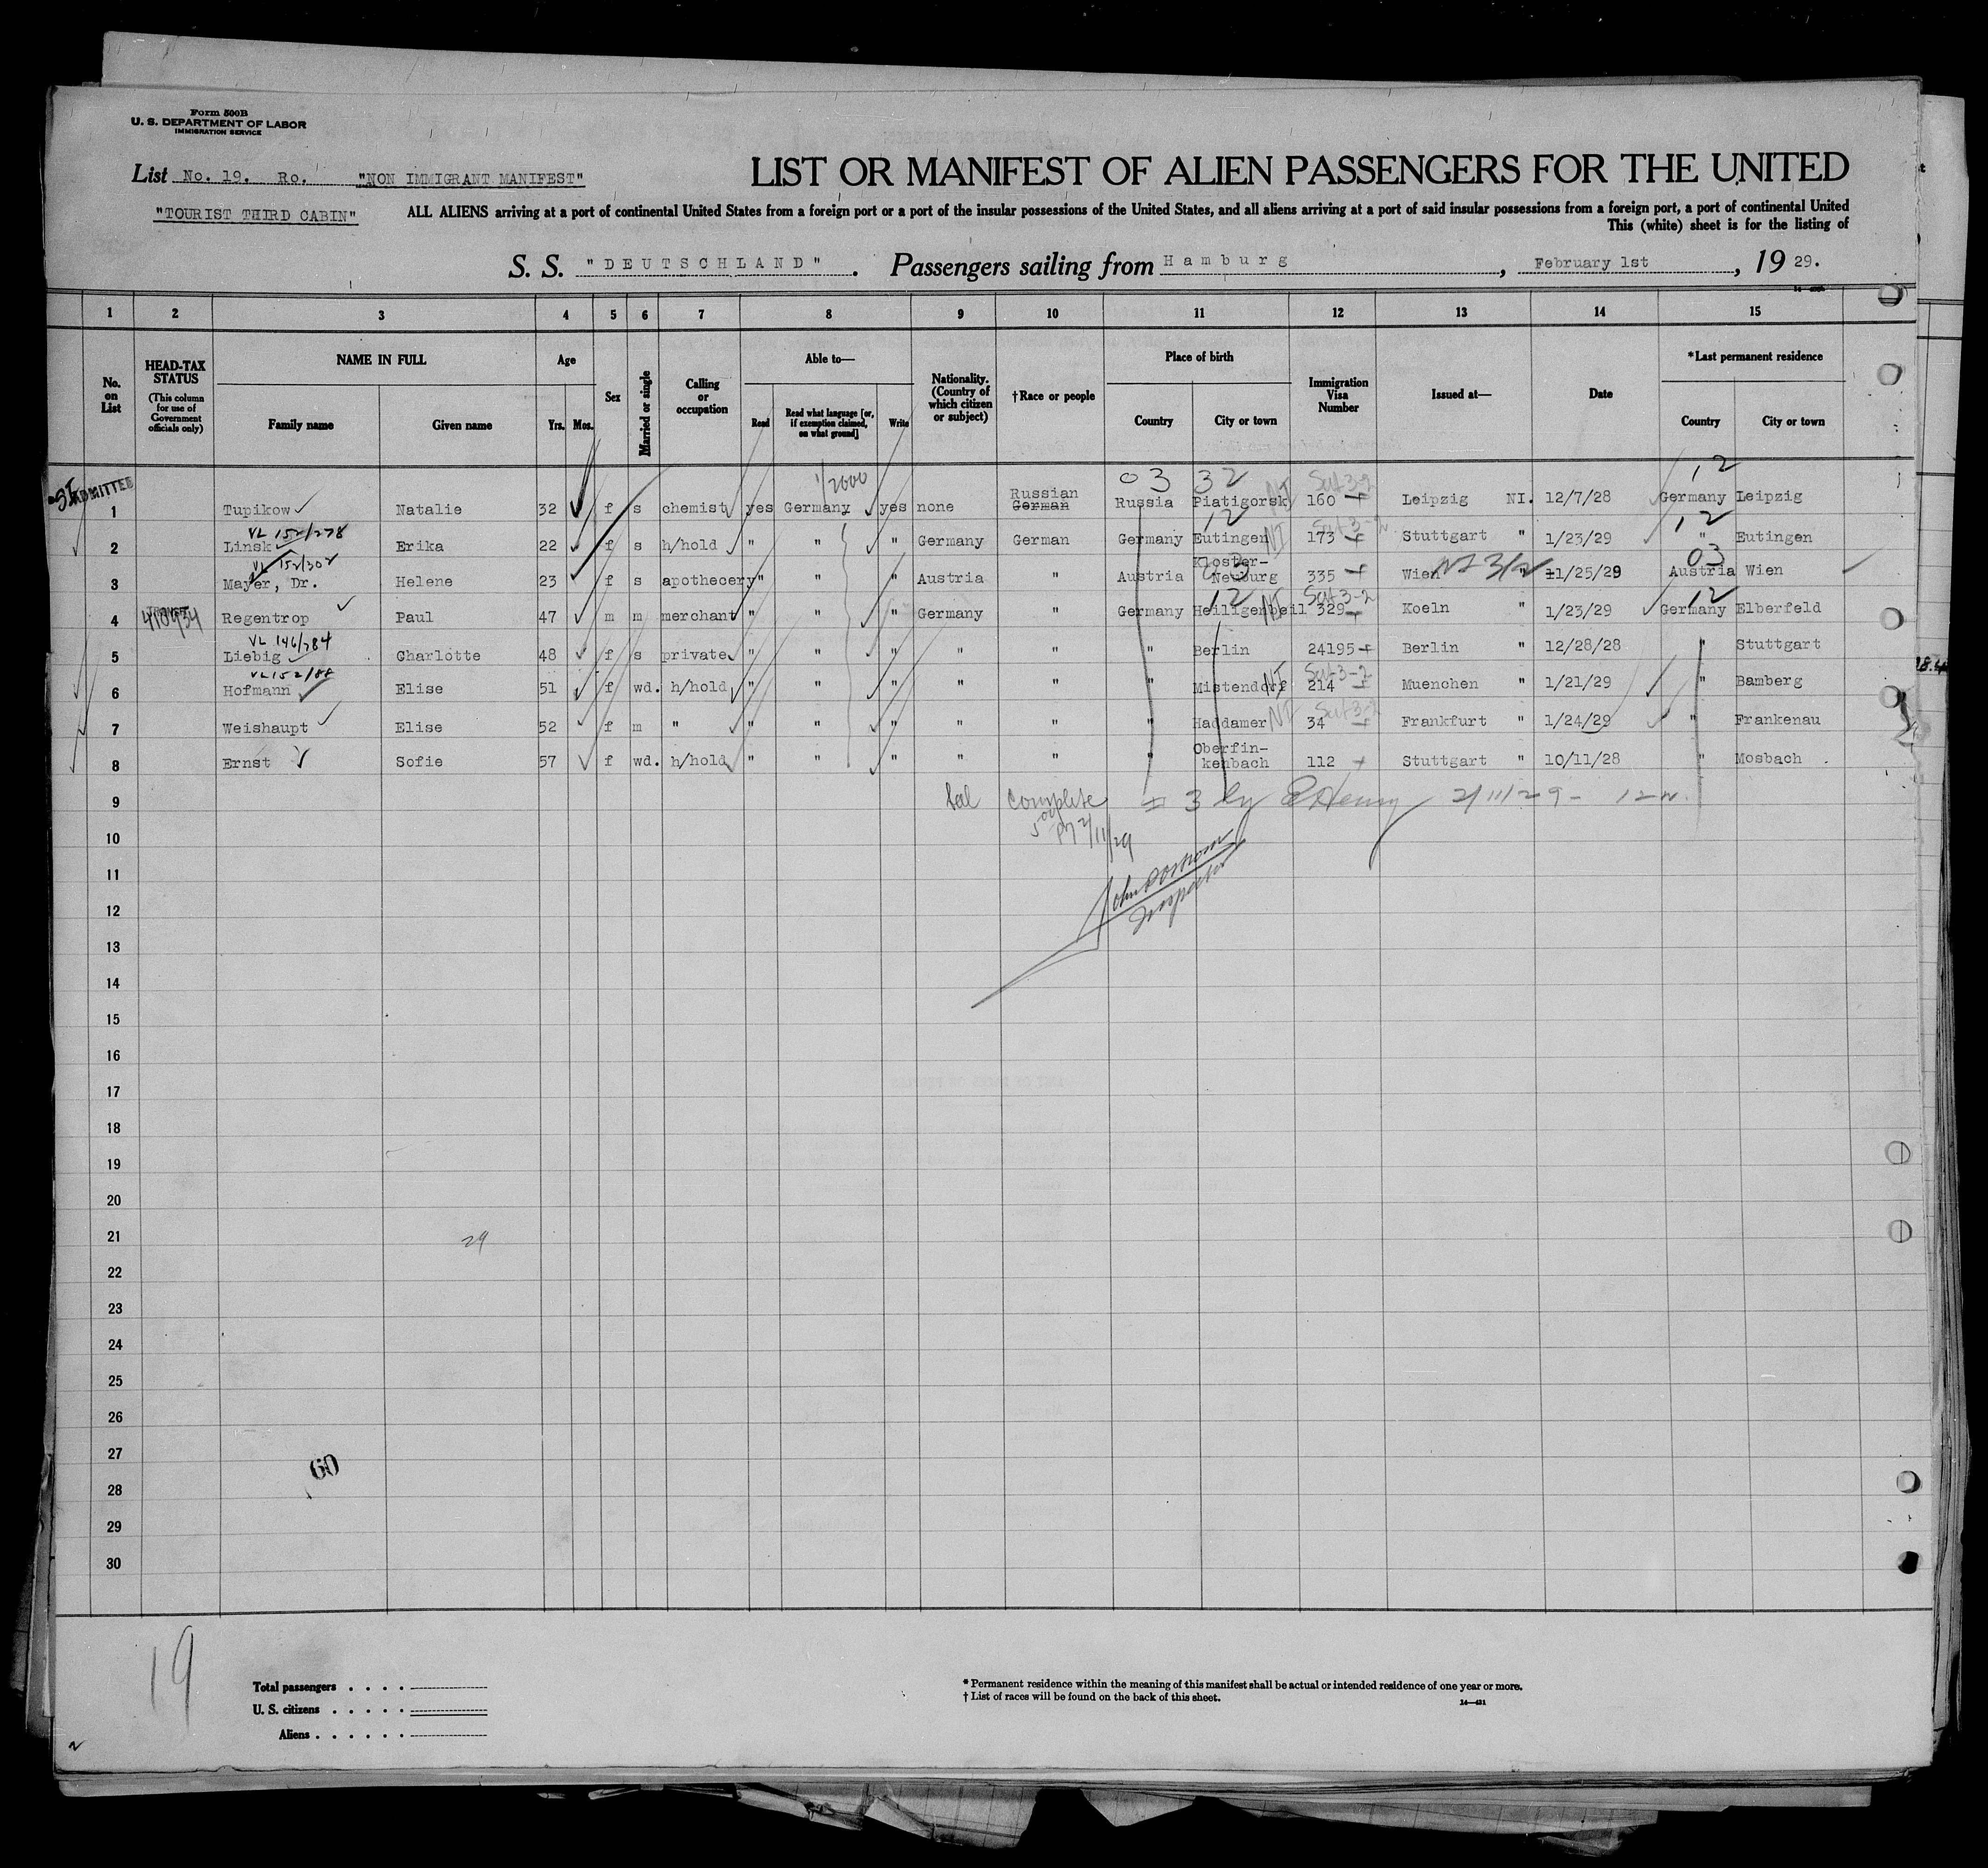 Form 500B
U. S. DEPARTMENT OF LABOR
IMMIGRATION SERVICE
List No. 19. Ro. "NON IMMIGRANT MANIFEST"
LIST OR MANIFEST OF ALIEN PASSENGERS FOR THE UNITED
"TOURIST THIRD CABIN"
ALL ALIENS arriving at a port of continental United States from a foreign port or a port of the insular possessions of the United States, and all aliens arriving at a port of said insular possessions from a foreign port, a port of continental United
This (white) sheet is for the listing of
S. S. "DEUTSCHLAND". Passengers sailing from Hamburg, February 1st, 19 29.
1 2 3 4 5 6 7 8 9 10 11 12 13 14 15
No. on List
HEAD-TAX STATUS (This column for use of Government officials only)
NAME IN FULL
Family name Given name
Age
Yrs. Mos.
Sex
Married or single
Calling or occupation
Able to—
Read Read what language [or, if exemption claimed, on what ground] Write
Nationality. (Country of which citizen or subject)
†Race or people
Place of birth
Country City or town
Immigration Visa Number
Issued at—
Date
*Last permanent residence
Country City or town
ADMITTED 1/2000 03 32 12
1 Tupikow Natalie 32 f s chemist yes Germany yes none Russian German Russia Piatigorsk NI 160 Leipzig NI. 12/7/28 Germany Leipzig
VL 152/278 12 12
2 Linsk Erika 22 f s h/hold " " " Germany German Germany Eutingen NI 173 Stuttgart " 1/23/29 " Eutingen
VL 152/302 03 03
3 Mayer, Dr. Helene 23 f s apothecery " " " Austria " Austria Kloster-Neuburg 335 Wien " 11/25/29 Austria Wien
12 12
4 Regentrop Paul 47 m m merchant " " " Germany " Germany Heiligenbeil 329 Koeln " 1/23/29 Germany Elberfeld
VL 146/284
5 Liebig Charlotte 48 f s private " " " " " " Berlin 24195 Berlin " 12/28/28 " Stuttgart
VL 152/88
6 Hofmann Elise 51 f wd. h/hold " " " " " " Mistendorf NI 214 Muenchen " 1/21/29 " Bamberg
7 Weishaupt Elise 52 f m " " " " " " " Haddamer NI 34 Frankfurt " 1/24/29 " Frankenau
8 Ernst Sofie 57 f wd. h/hold " " " " " " Oberfin-kenbach 112 Stuttgart " 10/11/28 " Mosbach
9 complete 3 by 2/11/29 -
10 2/11/29
11
12 Inspector
13
14
15
16
17
18
19
20
21 29
22
23
24
25
26
27
60
28
29
30
19
Total passengers
U. S. citizens
Aliens
* Permanent residence within the meaning of this manifest shall be actual or intended residence of one year or more.
† List of races will be found on the back of this sheet.
14—431